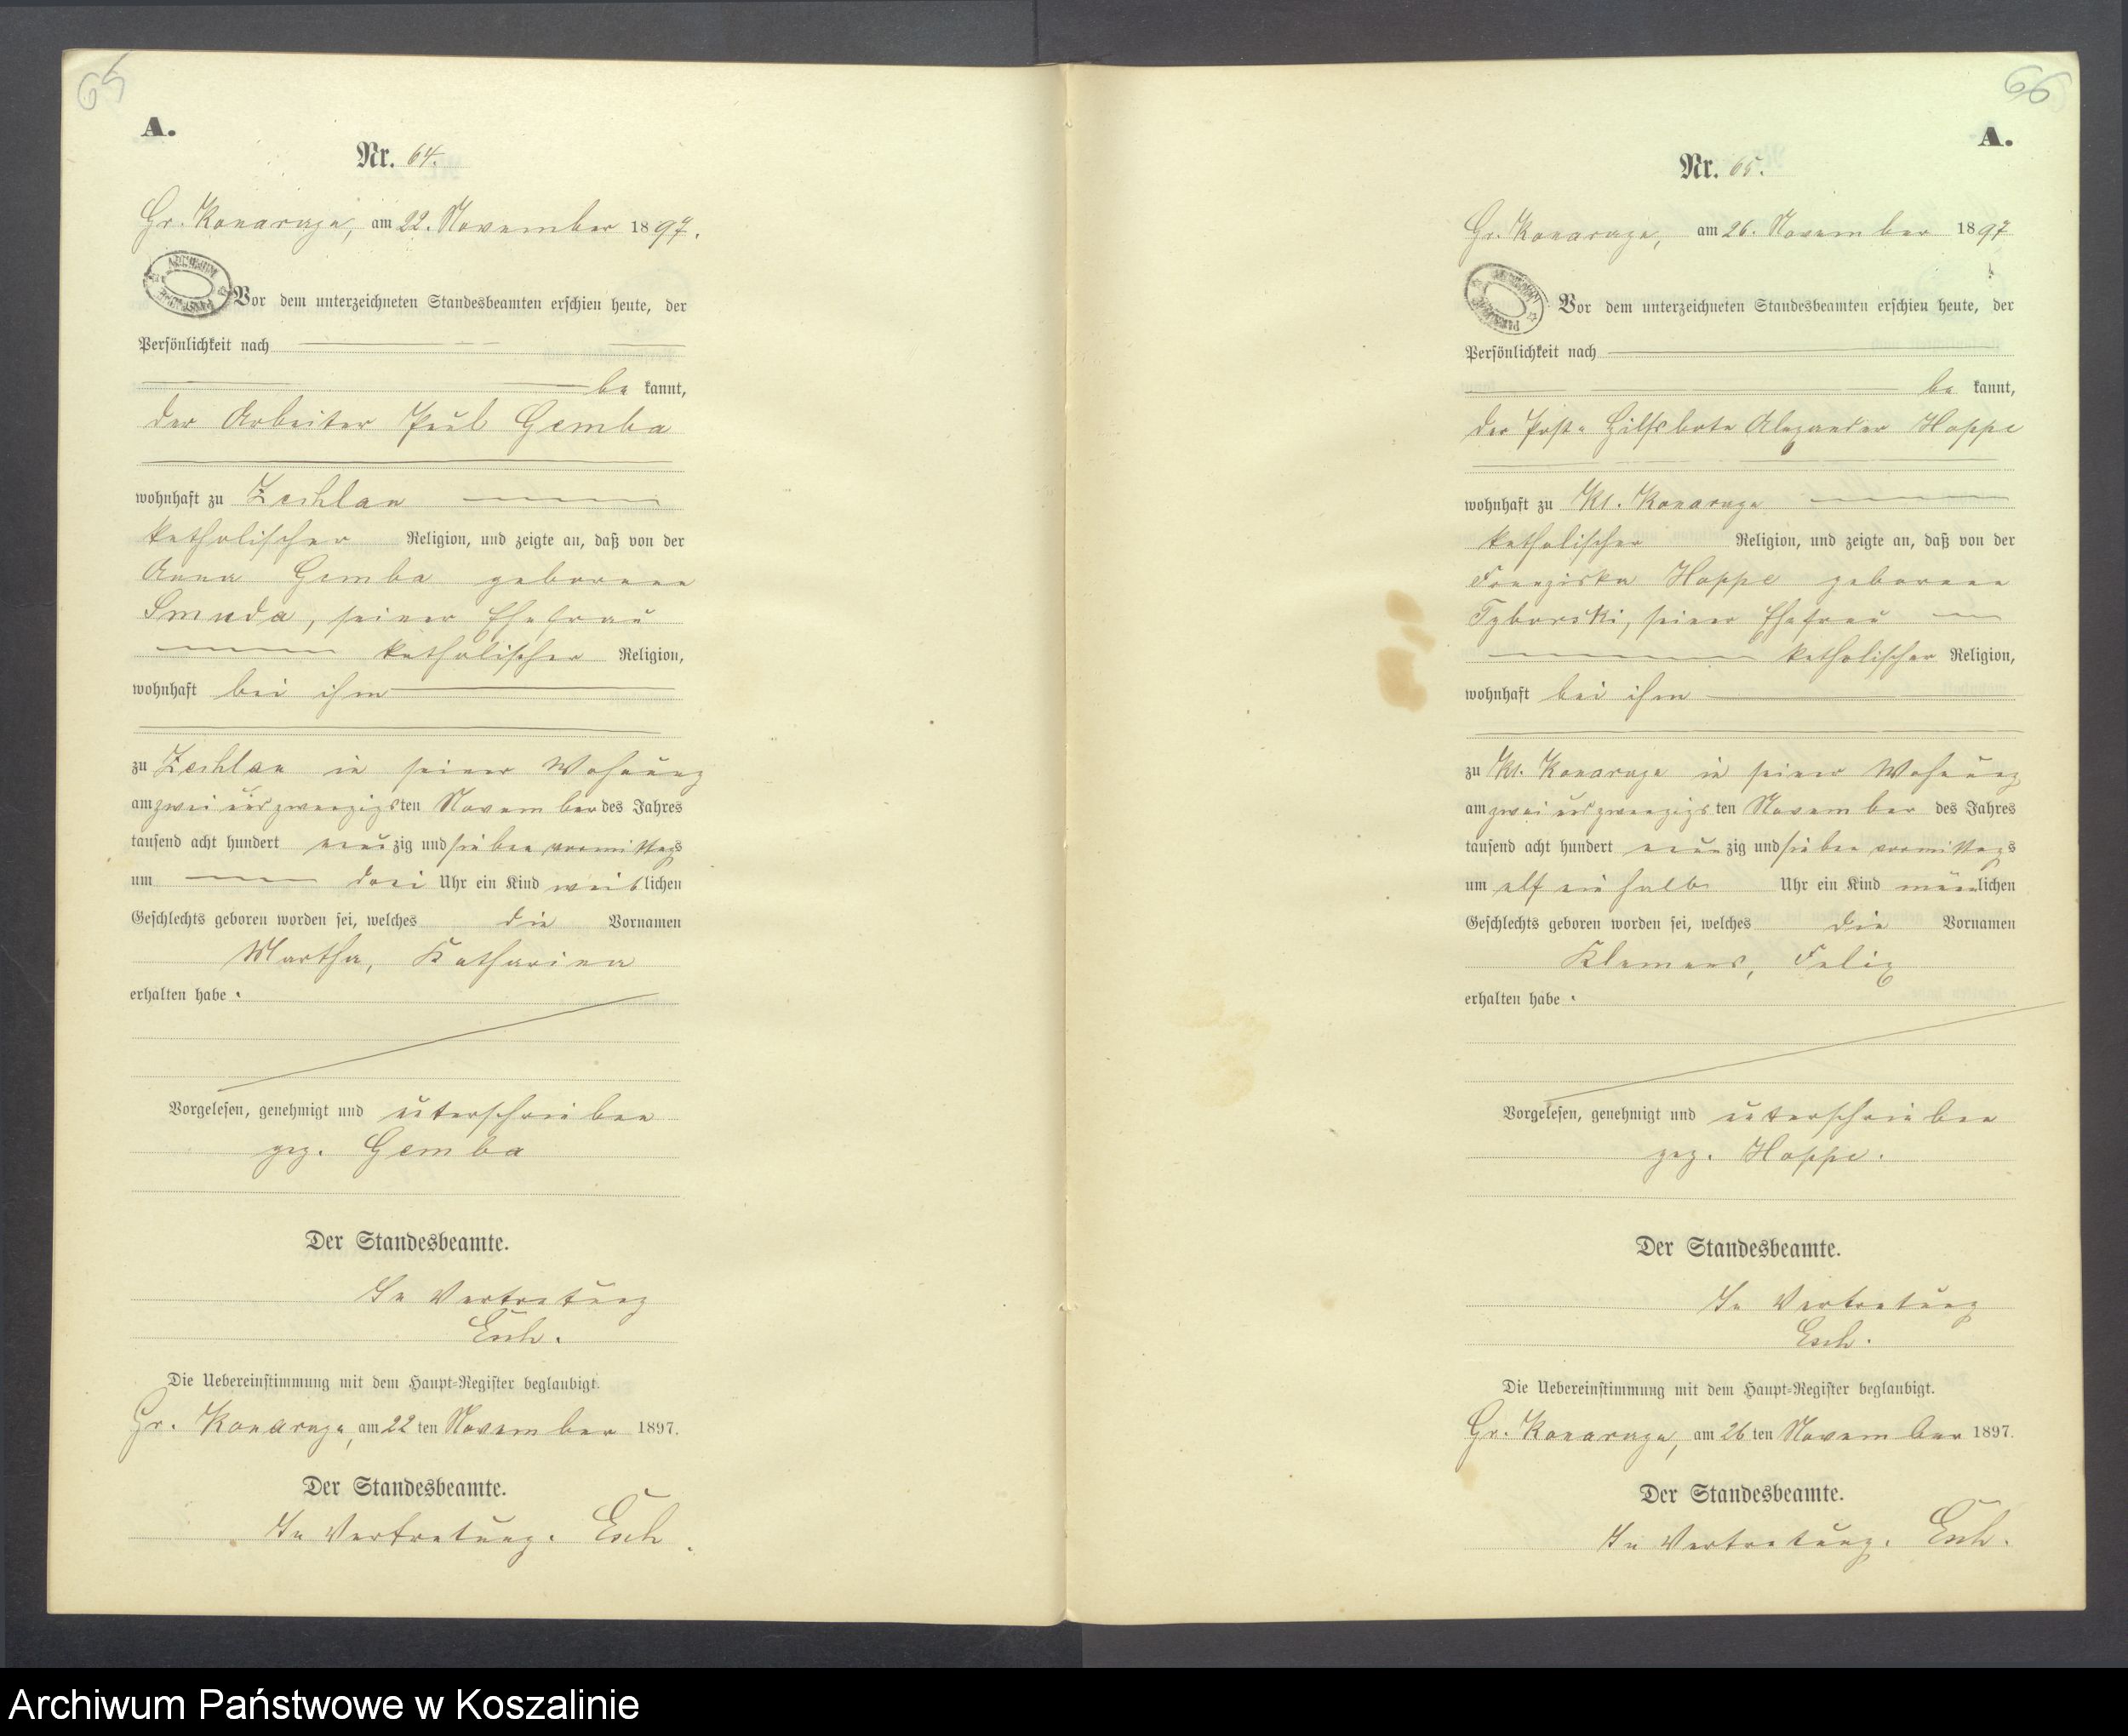 65
A.
Nr. 64.
Gr. Konarzyn, am 22. November 1897.
Vor dem unterzeichneten Standesbeamten erschien heute, der
Persönlichkeit nach
be kannt,
der Arbeiter Paul Gemba
wohnhaft zu Zechlau
katholischer Religion, und zeigte an, daß von der
Anna Gemba geborene
Smuda, seiner Ehefrau
katholischer Religion,
wohnhaft bei ihm
zu Zechlau in seiner Wohnung
am zwei und zwanzigsten November des Jahres
tausend acht hundert neunzig und sieben vormittags
um drei Uhr ein Kind weiblichen
Geschlechts geboren worden sei, welches die Vornamen
Martha, Katharina
erhalten habe.
Vorgelesen, genehmigt und unterschrieben
gez. Gemba
Der Standesbeamte.
In Vertretung
Esch.
Die Uebereinstimmung mit dem Haupt-Register beglaubigt.
Gr. Konarzyn, am 22 ten November 1897.
Der Standesbeamte.
In Vertretung. Esch.
66
A.
Nr. 65.
Gr. Konarzyn, am 26. November 1897
Vor dem unterzeichneten Standesbeamten erschien heute, der
Persönlichkeit nach
be kannt,
der Post-Hilfsbote Alexander Hoppe
wohnhaft zu Kl. Konarzyn
katholischer Religion, und zeigte an, daß von der
Franziska Hoppe geborene
Tyborski, seiner Ehefrau
katholischer Religion,
wohnhaft bei ihm
zu Kl. Konarzyn in seiner Wohnung
am zwei und zwanzigsten November des Jahres
tausend acht hundert neunzig und sieben vormittags
um elf ein halb Uhr ein Kind männlichen
Geschlechts geboren worden sei, welches die Vornamen
Klemens, Felix
erhalten habe.
Vorgelesen, genehmigt und unterschrieben
gez. Hoppe.
Der Standesbeamte.
In Vertretung
Esch.
Die Uebereinstimmung mit dem Haupt-Register beglaubigt.
Gr. Konarzyn, am 26 ten November 1897.
Der Standesbeamte.
In Vertretung. Esch.
Archiwum Państwowe w Koszalinie